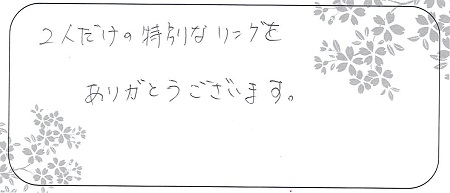 2人だけの特別なリングを
ありがとうございます。